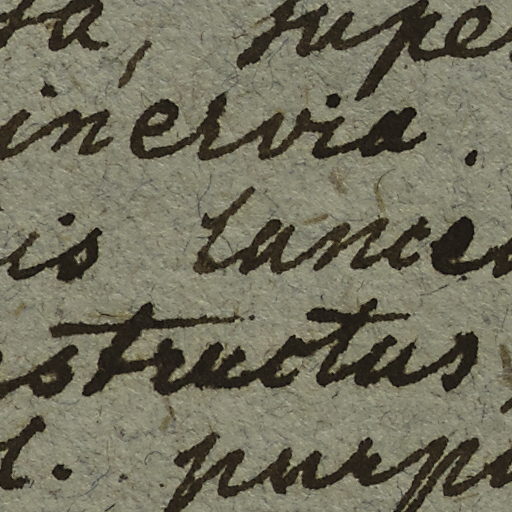 ta, supe
inervia.
is lance
structus
l. purp